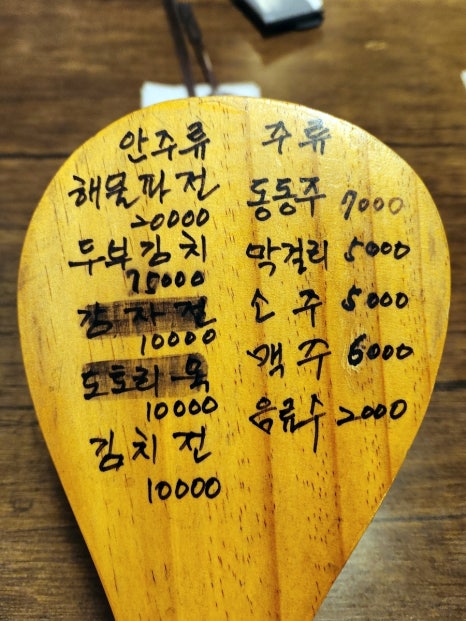 안주류
해물파전
20000
두부김치
15000
감자전
10000
도토리묵
10000
김치전
10000
주류
동동주 7000
막걸리 5000
소주 5000
맥주 6000
음료수 2000